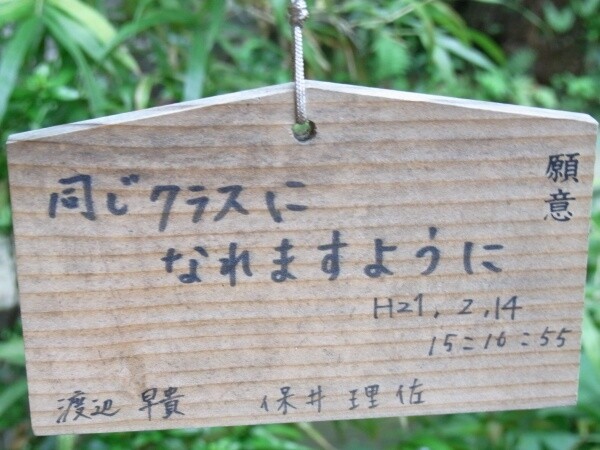 願意
同じクラスに
なれますように
H21.2.14
15:16:55
渡辺 早貴 保井 理佐